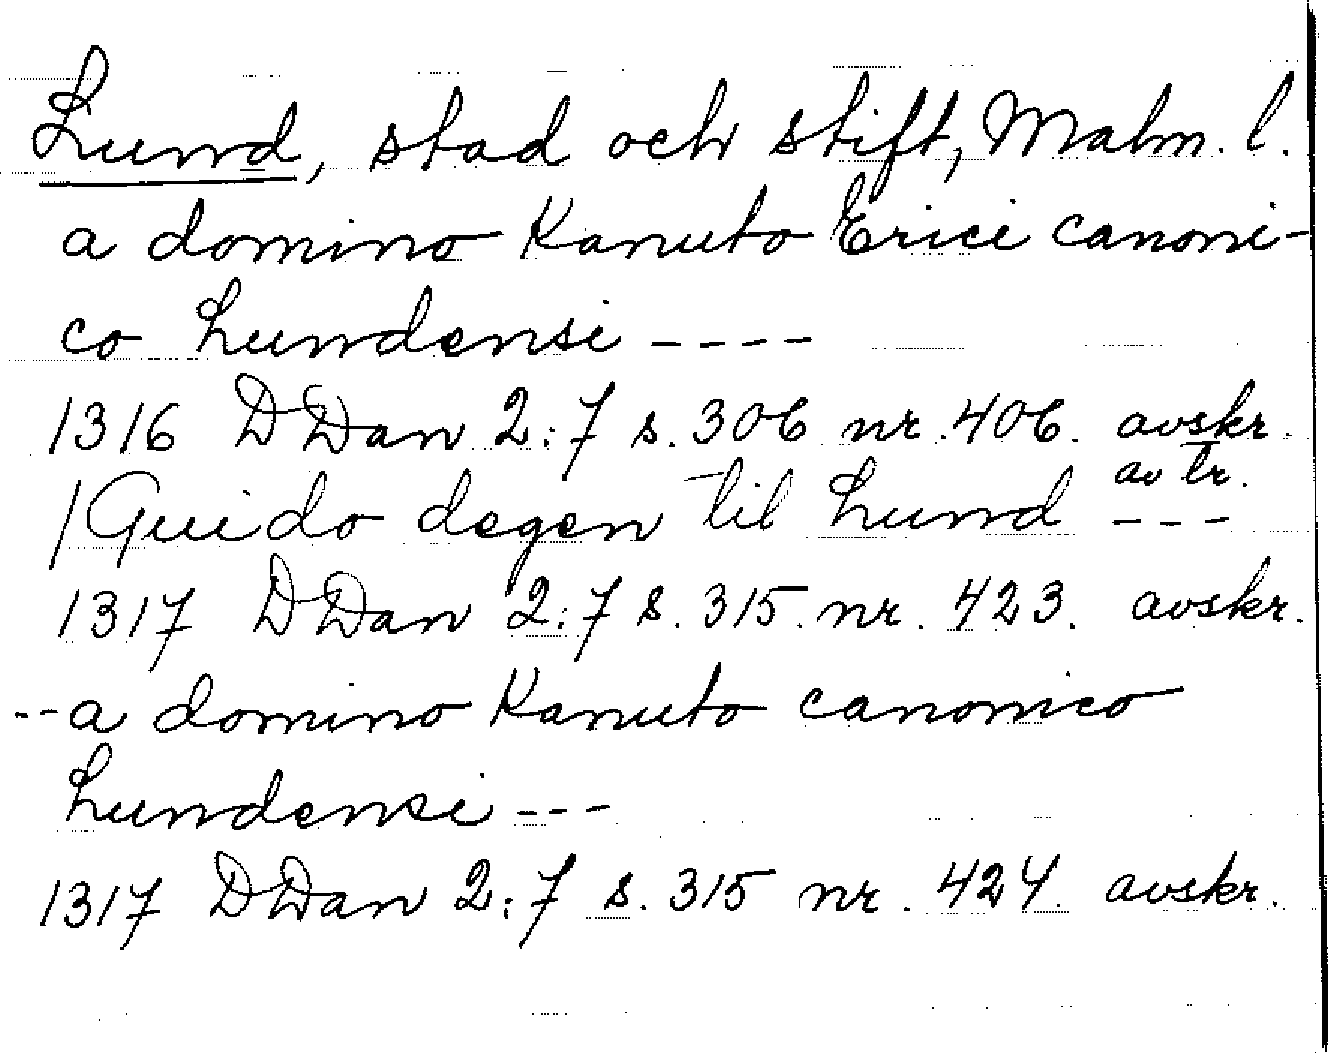 Lund, stad och stift, Malm. l.
a domino Kanuto Erici canoni-
co Lundensi ----
1316 DDan 2:7 s. 306 nr. 406. avskr.
av tr.
/Guido degen til Lund ---
1317 DDan 2:7 s. 315 nr. 423. avskr.
--a domino Kanuto canonico
Lundensi ---
1317 DDan 2:7 s. 315 nr. 424. avskr.